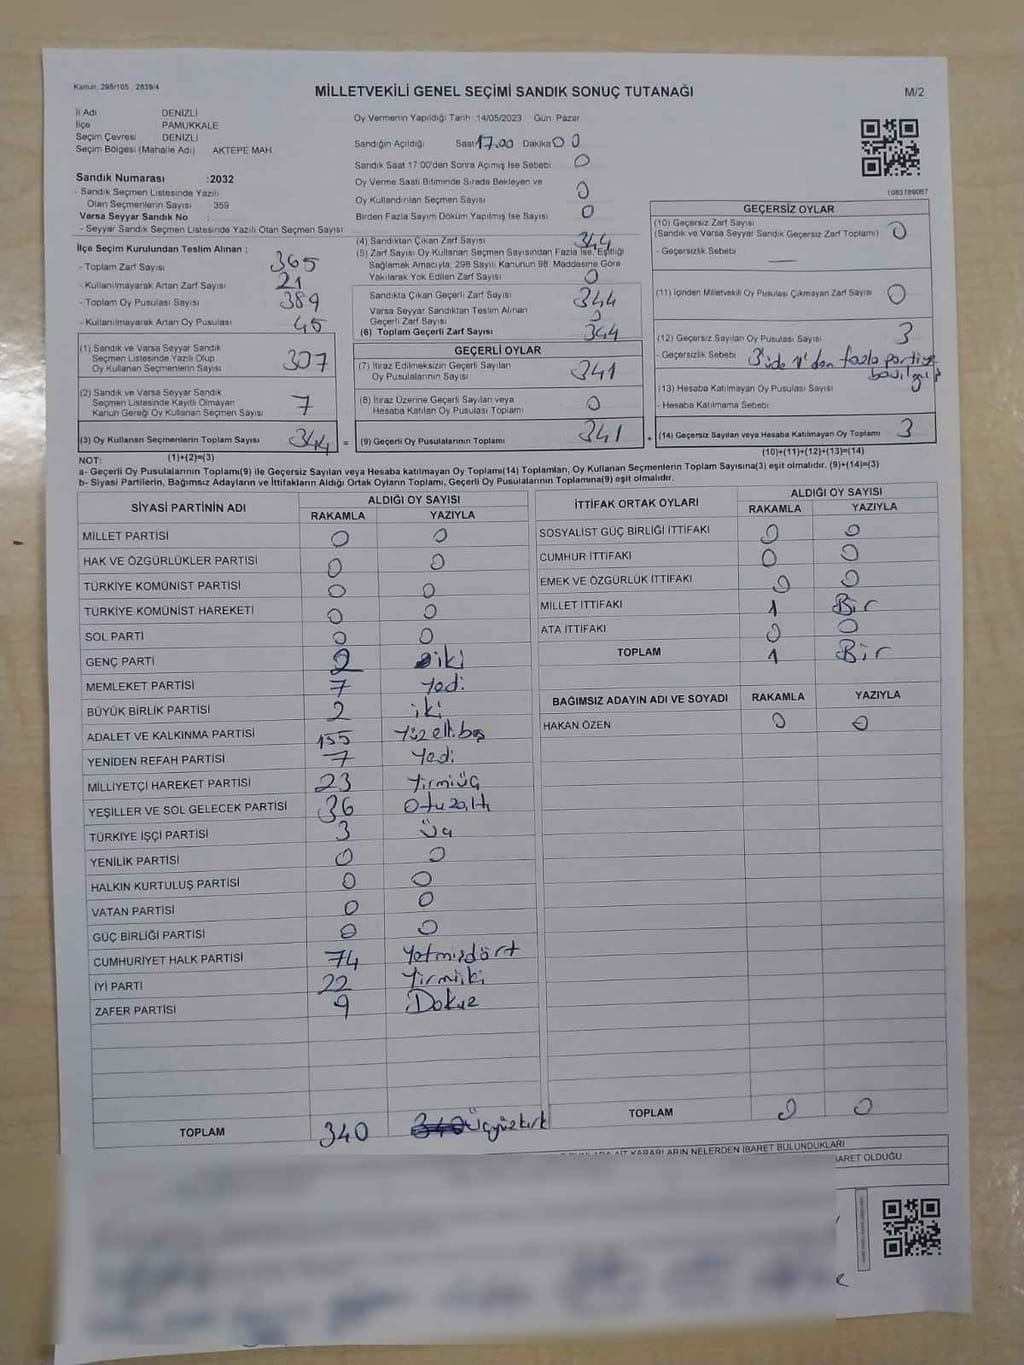 Kanun: 298/105 , 2839/4
MİLLETVEKİLİ GENEL SEÇİMİ SANDIK SONUÇ TUTANAĞI
M/2
İl Adı DENİZLİ
İlçe PAMUKKALE
Seçim Çevresi DENİZLİ
Seçim Bölgesi (Mahalle Adı) AKTEPE MAH
Sandık Numarası :2032
- Sandık Seçmen Listesinde Yazılı
Olan Seçmenlerin Sayısı 359
Varsa Seyyar Sandık No :
- Seyyar Sandık Seçmen Listesinde Yazılı Olan Seçmen Sayısı
Oy Vermenin Yapıldığı Tarih :14/05/2023 Gün: Pazar
Sandığın Açıldığı Saat 17.00 Dakika 0 0
Sandık Saat 17:00'den Sonra Açılmış İse Sebebi 0
Oy Verme Saati Bitiminde Sırada Bekleyen ve
Oy Kullandırılan Seçmen Sayısı 0
Birden Fazla Sayım Döküm Yapılmış İse Sayısı 0
1083789067
İlçe Seçim Kurulundan Teslim Alınan ;
- Toplam Zarf Sayısı 365
- Kullanılmayarak Artan Zarf Sayısı 21
- Toplam Oy Pusulası Sayısı 389
- Kullanılmayarak Artan Oy Pusulası 45
(1) Sandık ve Varsa Seyyar Sandık
Seçmen Listesinde Yazılı Olup
Oy Kullanan Seçmenlerin Sayısı 307
(2) Sandık ve Varsa Seyyar Sandık
Seçmen Listesinde Kayıtlı Olmayan
Kanun Gereği Oy Kullanan Seçmen Sayısı 7
(3) Oy Kullanan Seçmenlerin Toplam Sayısı 344 =
(4) Sandıktan Çıkan Zarf Sayısı 344
(5) Zarf Sayısı Oy Kullanan Seçmen Sayısından Fazla İse, Eşitliği
Sağlamak Amacıyla, 298 Sayılı Kanunun 98. Maddesine Göre
Yakılarak Yok Edilen Zarf Sayısı 0
Sandıkta Çıkan Geçerli Zarf Sayısı 344
Varsa Seyyar Sandıktan Teslim Alınan
Geçerli Zarf Sayısı 0
(6) Toplam Geçerli Zarf Sayısı 344
GEÇERLİ OYLAR
(7) İtiraz Edilmeksizin Geçerli Sayılan
Oy Pusulalarının Sayısı 341
(8) İtiraz Üzerine Geçerli Sayılan veya
Hesaba Katılan Oy Pusulası Toplamı 0
(9) Geçerli Oy Pusulalarının Toplamı 341 +
GEÇERSİZ OYLAR
(10) Geçersiz Zarf Sayısı
(Sandık ve Varsa Seyyar Sandık Geçersiz Zarf Toplamı) 0
- Geçersizlik Sebebi —
(11) İçinden Milletvekili Oy Pusulası Çıkmayan Zarf Sayısı 0
(12) Geçersiz Sayılan Oy Pusulası Sayısı 3
- Geçersizlik Sebebi 3'üde 1'den fazla partiye
(13) Hesaba Katılmayan Oy Pusulası Sayısı
- Hesaba Katılmama Sebebi
(14) Geçersiz Sayılan veya Hesaba Katılmayan Oy Toplamı 3
NOT: (1)+(2)=(3)
(10)+(11)+(12)+(13)=(14)
a- Geçerli Oy Pusulalarının Toplamı(9) ile Geçersiz Sayılan veya Hesaba katılmayan Oy Toplamı(14) Toplamları, Oy Kullanan Seçmenlerin Toplam Sayısına(3) eşit olmalıdır. (9)+(14)=(3)
b- Siyasi Partilerin, Bağımsız Adayların ve İttifakların Aldığı Ortak Oyların Toplamı, Geçerli Oy Pusulalarının Toplamına(9) eşit olmalıdır.
SİYASİ PARTİNİN ADI ALDIĞI OY SAYISI
RAKAMLA YAZIYLA
MİLLET PARTİSİ 0 0
HAK VE ÖZGÜRLÜKLER PARTİSİ 0 0
TÜRKİYE KOMÜNİST PARTİSİ 0 0
TÜRKİYE KOMÜNİST HAREKETİ 0 0
SOL PARTİ 0 0
GENÇ PARTİ 2 iki
MEMLEKET PARTİSİ 7 Yedi
BÜYÜK BİRLİK PARTİSİ 2 iki
ADALET VE KALKINMA PARTİSİ 155 Yüzellibeş
YENİDEN REFAH PARTİSİ 7 Yedi
MİLLİYETÇİ HAREKET PARTİSİ 23 Yirmiüç
YEŞİLLER VE SOL GELECEK PARTİSİ 36 Otuzaltı
TÜRKİYE İŞÇİ PARTİSİ 3 Üç
YENİLİK PARTİSİ 0 0
HALKIN KURTULUŞ PARTİSİ 0 0
VATAN PARTİSİ 0 0
GÜÇ BİRLİĞİ PARTİSİ 0 0
CUMHURİYET HALK PARTİSİ 74 Yetmişdört
İYİ PARTİ 22 Yirmiiki
ZAFER PARTİSİ 9 Dokuz
TOPLAM 340 340 Üçyüzkırk
İTTİFAK ORTAK OYLARI ALDIĞI OY SAYISI
RAKAMLA YAZIYLA
SOSYALİST GÜÇ BİRLİĞİ İTTİFAKI 0 0
CUMHUR İTTİFAKI 0 0
EMEK VE ÖZGÜRLÜK İTTİFAKI 0 0
MİLLET İTTİFAKI 1 Bir
ATA İTTİFAKI 0 0
TOPLAM 1 Bir
BAĞIMSIZ ADAYIN ADI VE SOYADI RAKAMLA YAZIYLA
HAKAN ÖZEN 0 0
TOPLAM 0 0
AİT KARARLARIN NELERDEN İBARET BULUNDUKLARI
BARET OLDUĞU